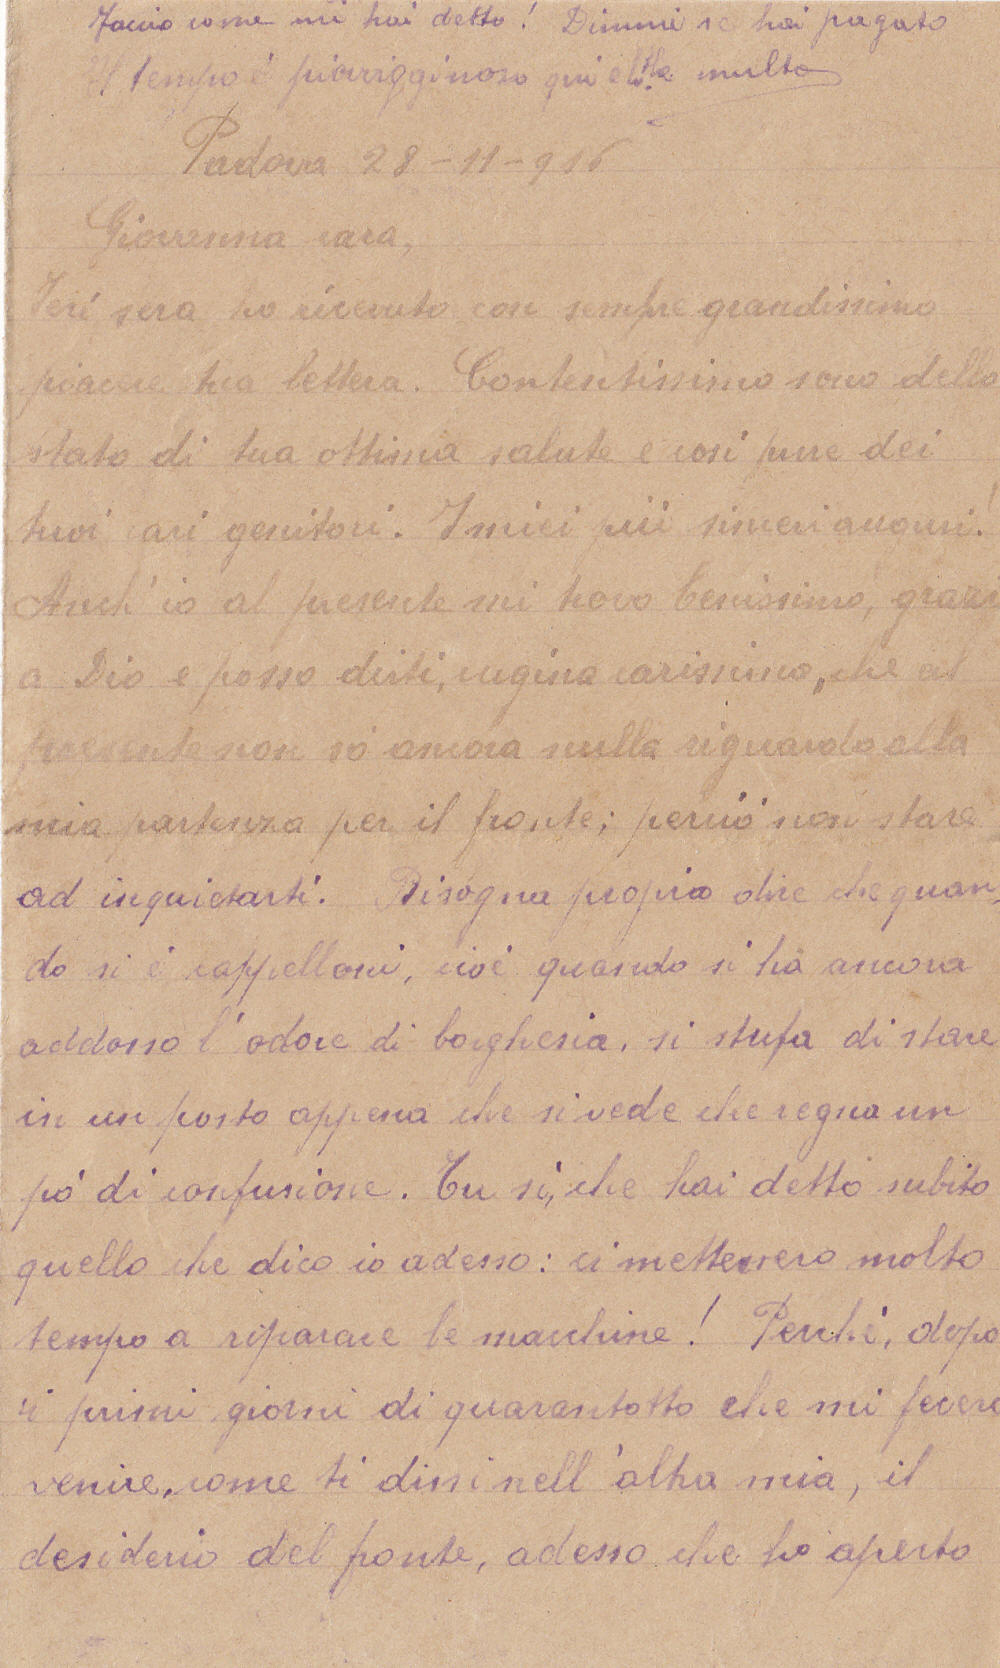 Faccio come mi hai detto! Dimmi se hai pagato
Il tempo è piovigginoso qui e la multa
Padova 28-11-916
Giovanna cara,
Ieri sera ho ricevuto con sempre grandissimo
piacere tua lettera. Contentissimo sono dello
stato di tua ottima salute e così pure dei
tuoi cari genitori. I miei più sinceri auguri!
Anch'io al presente mi trovo benissimo, grazie
a Dio e posso dirti, cugina carissima, che al
presente non sò ancora nulla riguardo alla
mia partenza per il fronte; perciò non stare
ad inquietarti. Bisogna proprio dire che quan,
do si è cappelloni, cioè quando si ha ancora
addosso l'odore di borghesia, si stufa di stare
in un posto appena che si vede che regna un
pò di confusione. Tu sì, che hai detto subito
quello che dico io adesso: ci mettessero molto
tempo a riparare le macchine! Perchè, dopo
i primi giorni di quarantotto che mi fecero
venire, come ti dissi nell'altra mia, il
desiderio del fronte, adesso che ho aperto